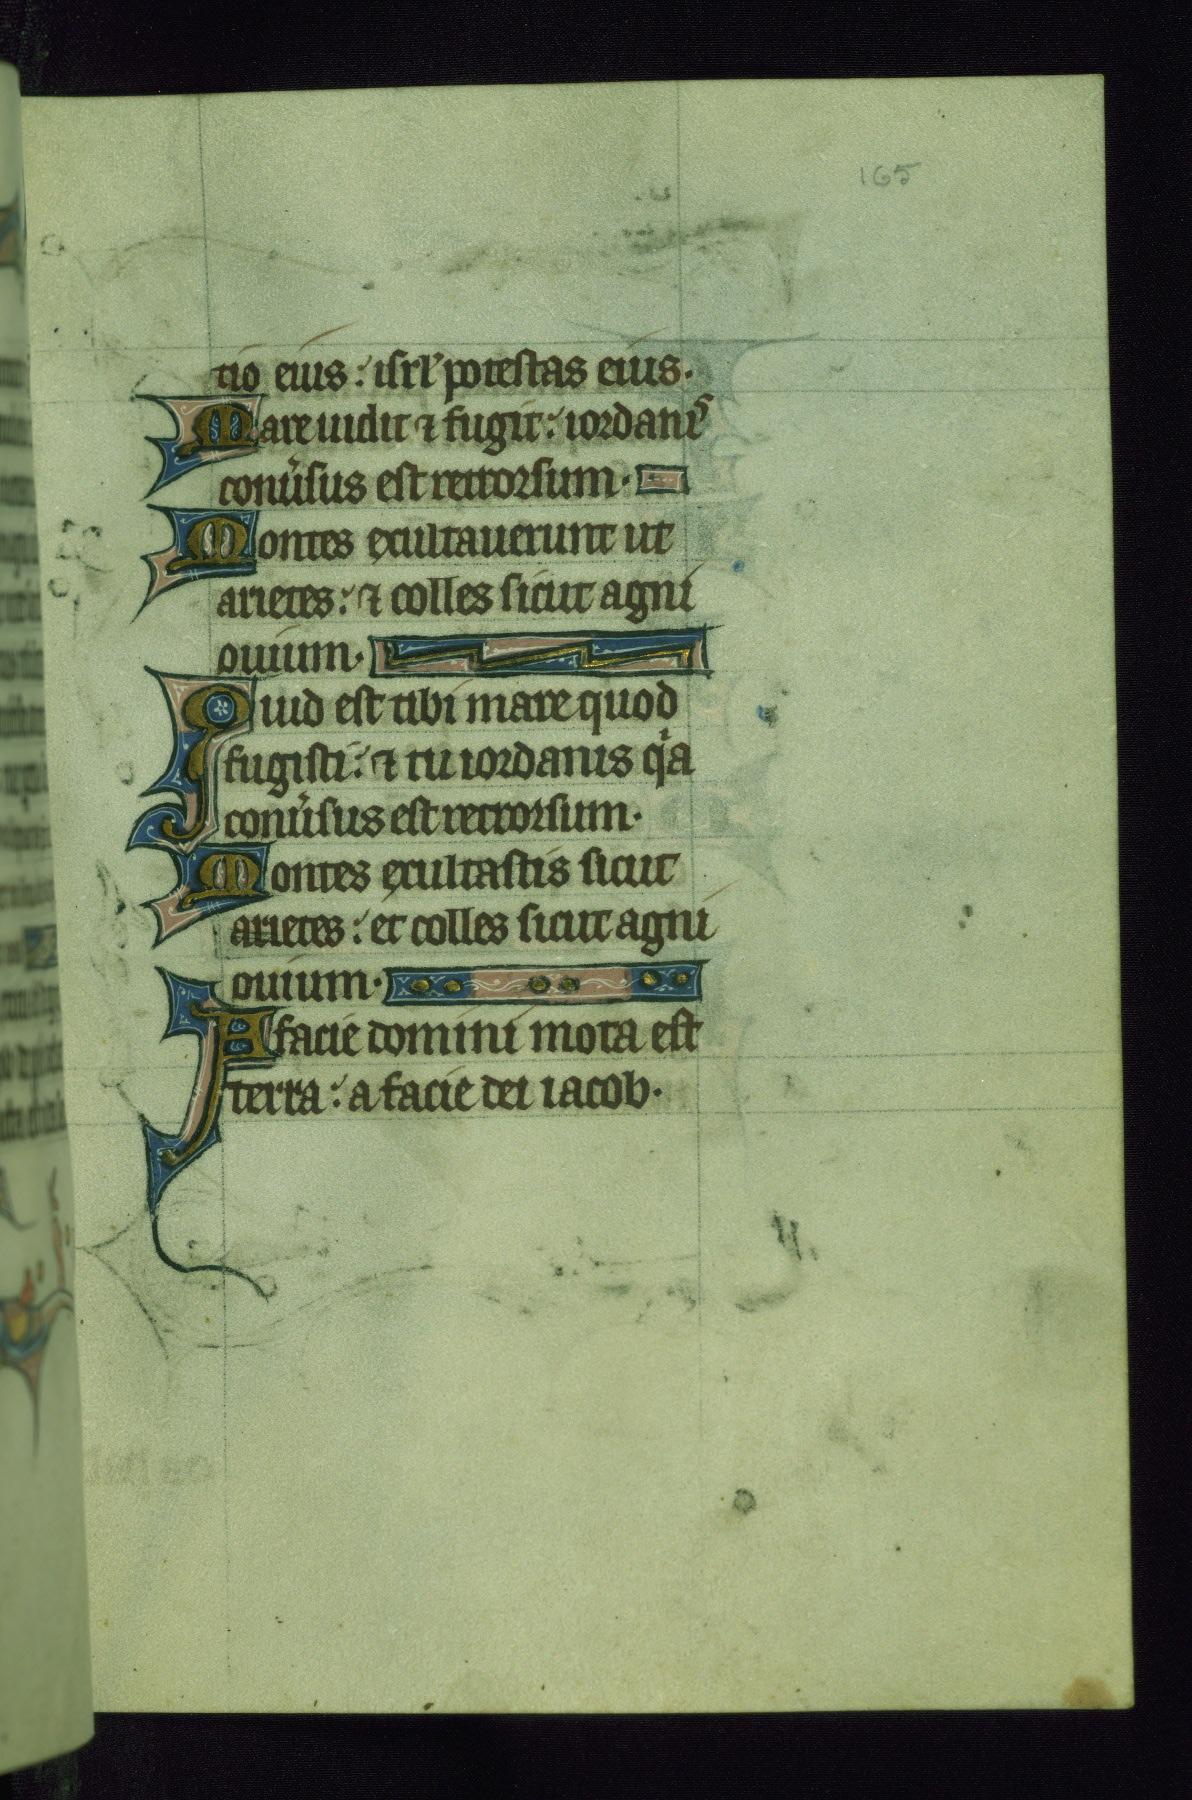 165
tio eius : isrl' potestas eius .
Mare uidit ⁊ fugit : iordanis
conu'sus est retrorsum .
Montes exultauerunt ut
arietes : ⁊ colles sicut agni
ouium .
Quid est tibi mare quod
fugisti : ⁊ tu iordanis qia
conu'sus est retrorsum .
Montes exultastis sicut
arietes : et colles sicut agni
ouium .
A facie domini mota est
terra : a facie dei iacob .